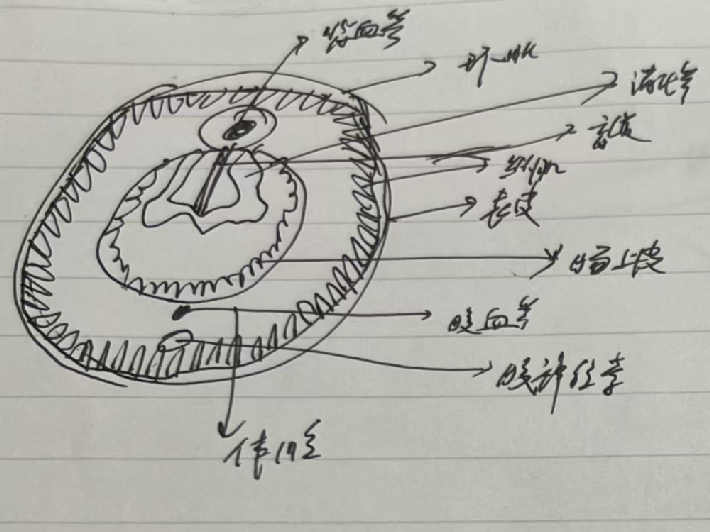 背血管
环肌
消化管
盲道
纵肌
表皮
肠上皮
腹血管
腹神经索
体腔